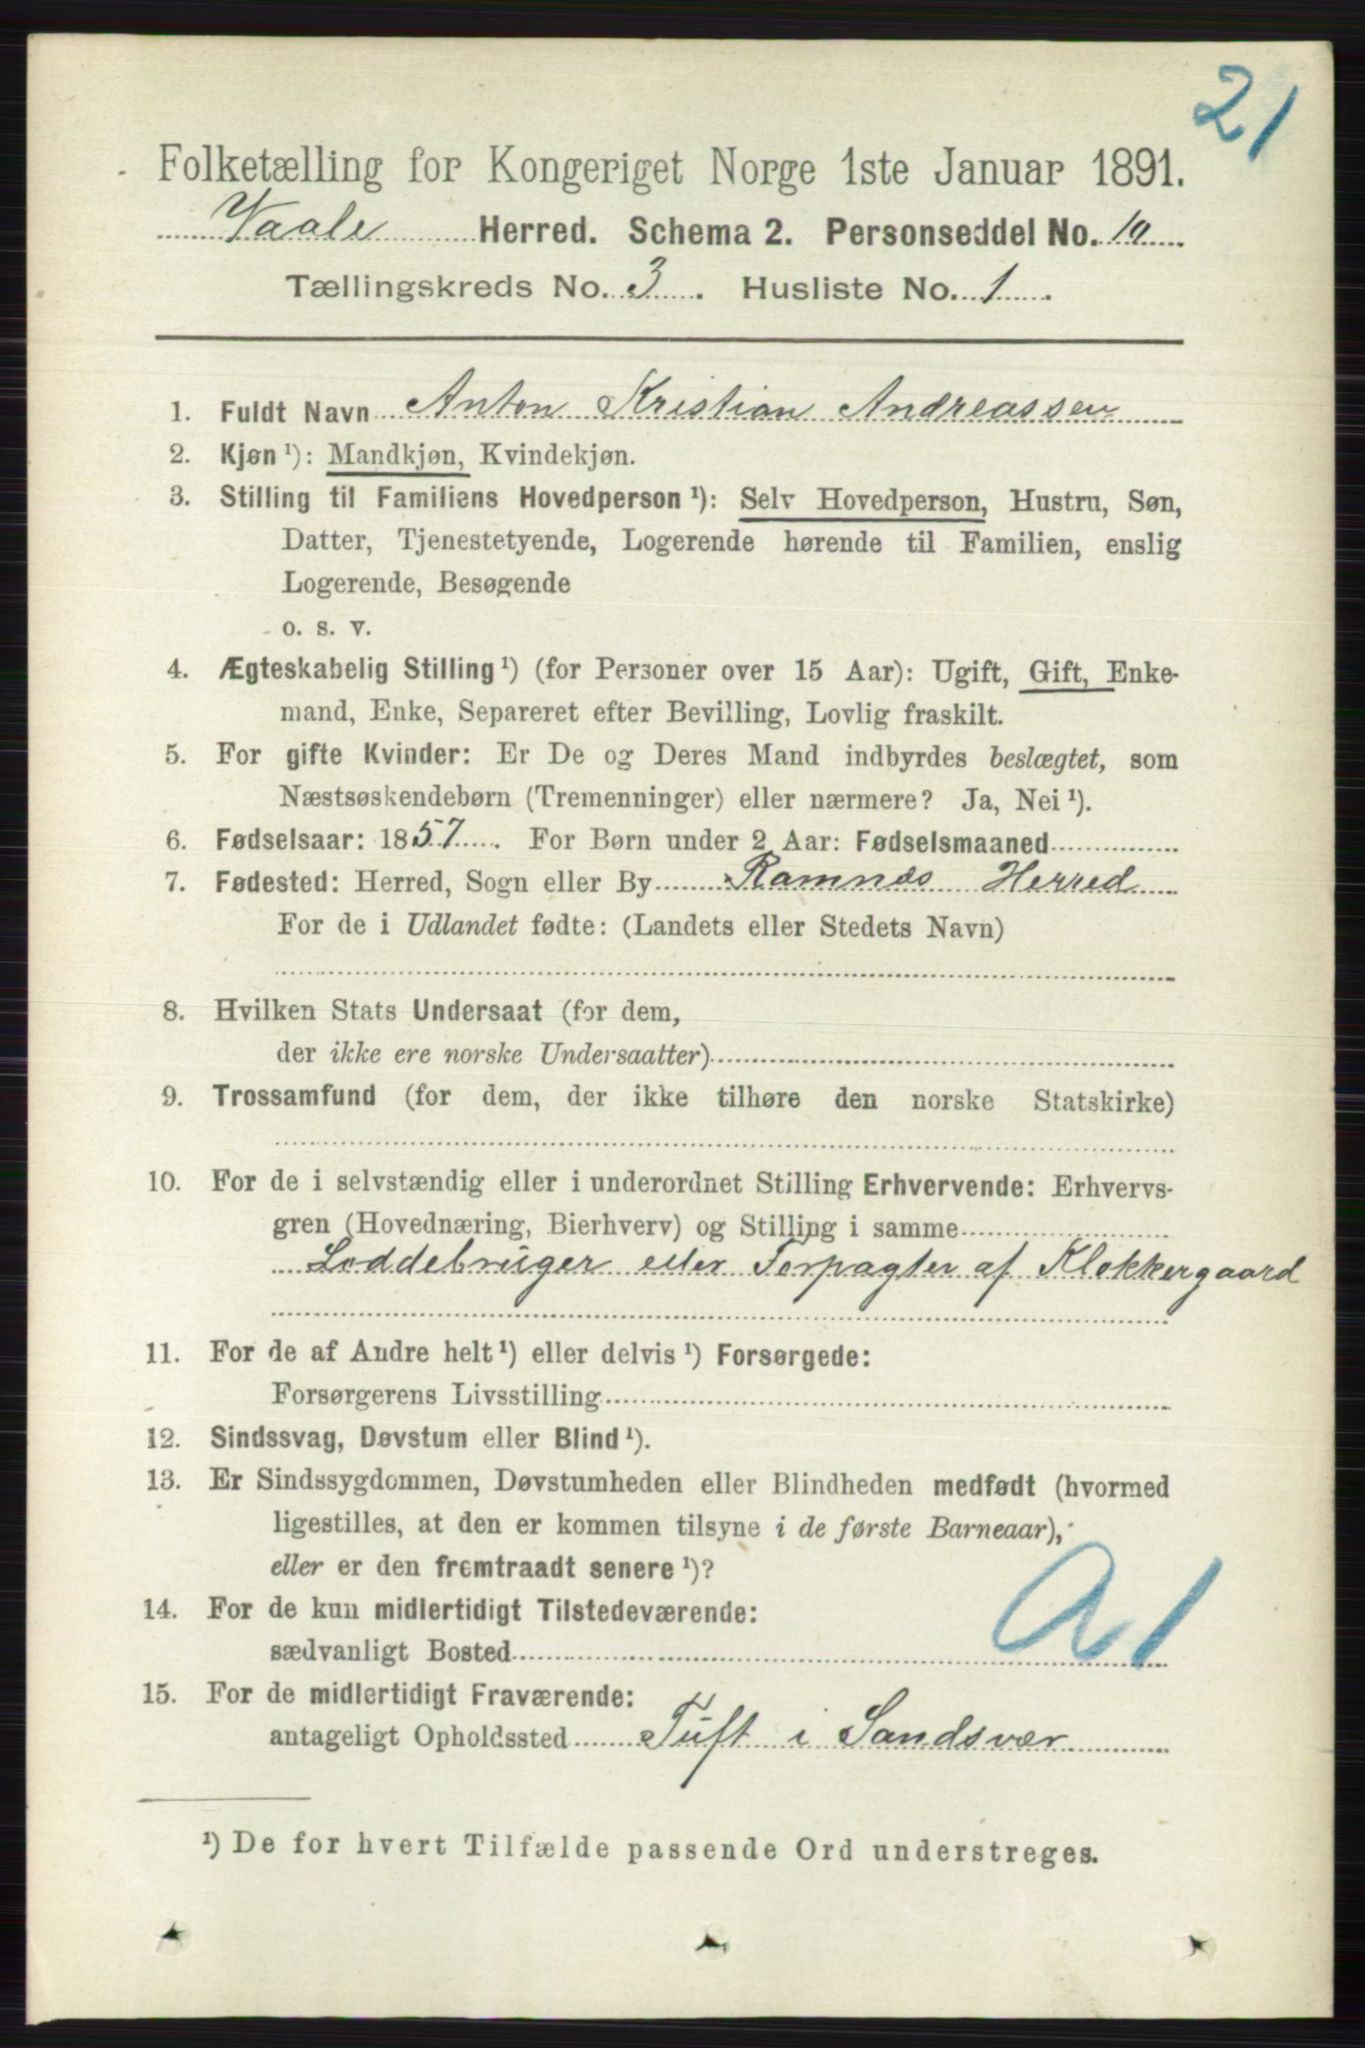 21
Folketælling for Kongeriget Norge 1ste Januar 1891.
Vaale Herred. Schema 2. Personseddel No. 10
Tællingskreds No. 3. Husliste No. 1.
1. Fuldt Navn Anton Kristian Andreassen
2. Kjøn ¹): Mandkjøn, Kvindekjøn.
3. Stilling til Familiens Hovedperson ¹): Selv Hovedperson, Hustru, Søn,
Datter, Tjenestetyende, Logerende hørende til Familien, enslig
Logerende, Besøgende
o. s. v.
4. Ægteskabelig Stilling ¹) (for Personer over 15 Aar): Ugift, Gift, Enke-
mand, Enke, Separeret efter Bevilling, Lovlig fraskilt.
5. For gifte Kvinder: Er De og Deres Mand indbyrdes beslægtet, som
Næstsøskendebørn (Tremenninger) eller nærmere? Ja, Nei ¹).
6. Fødselsaar: 1857. For Børn under 2 Aar: Fødselsmaaned
7. Fødested: Herred, Sogn eller By Ramnæs Herred
For de i Udlandet fødte: (Landets eller Stedets Navn)
8. Hvilken Stats Undersaat (for dem,
der ikke ere norske Undersaatter)
9. Trossamfund (for dem, der ikke tilhøre den norske Statskirke)
10. For de i selvstændig eller i underordnet Stilling Erhvervende: Erhvervs-
gren (Hovednæring, Bierhverv) og Stilling i samme
Loddebruger eller Forpagter af Klokkergaard
11. For de af Andre helt ¹) eller delvis ¹) Forsørgede:
Forsørgerens Livsstilling
12. Sindssvag, Døvstum eller Blind ¹).
13. Er Sindssygdommen, Døvstumheden eller Blindheden medfødt (hvormed
ligestilles, at den er kommen tilsyne i de første Barneaar),
eller er den fremtraadt senere ¹)?
14. For de kun midlertidigt Tilstedeværende:
sædvanligt Bosted
a 1
15. For de midlertidigt Fraværende:
antageligt Opholdssted Tuft i Sandsvær
¹) De for hvert Tilfælde passende Ord understreges.